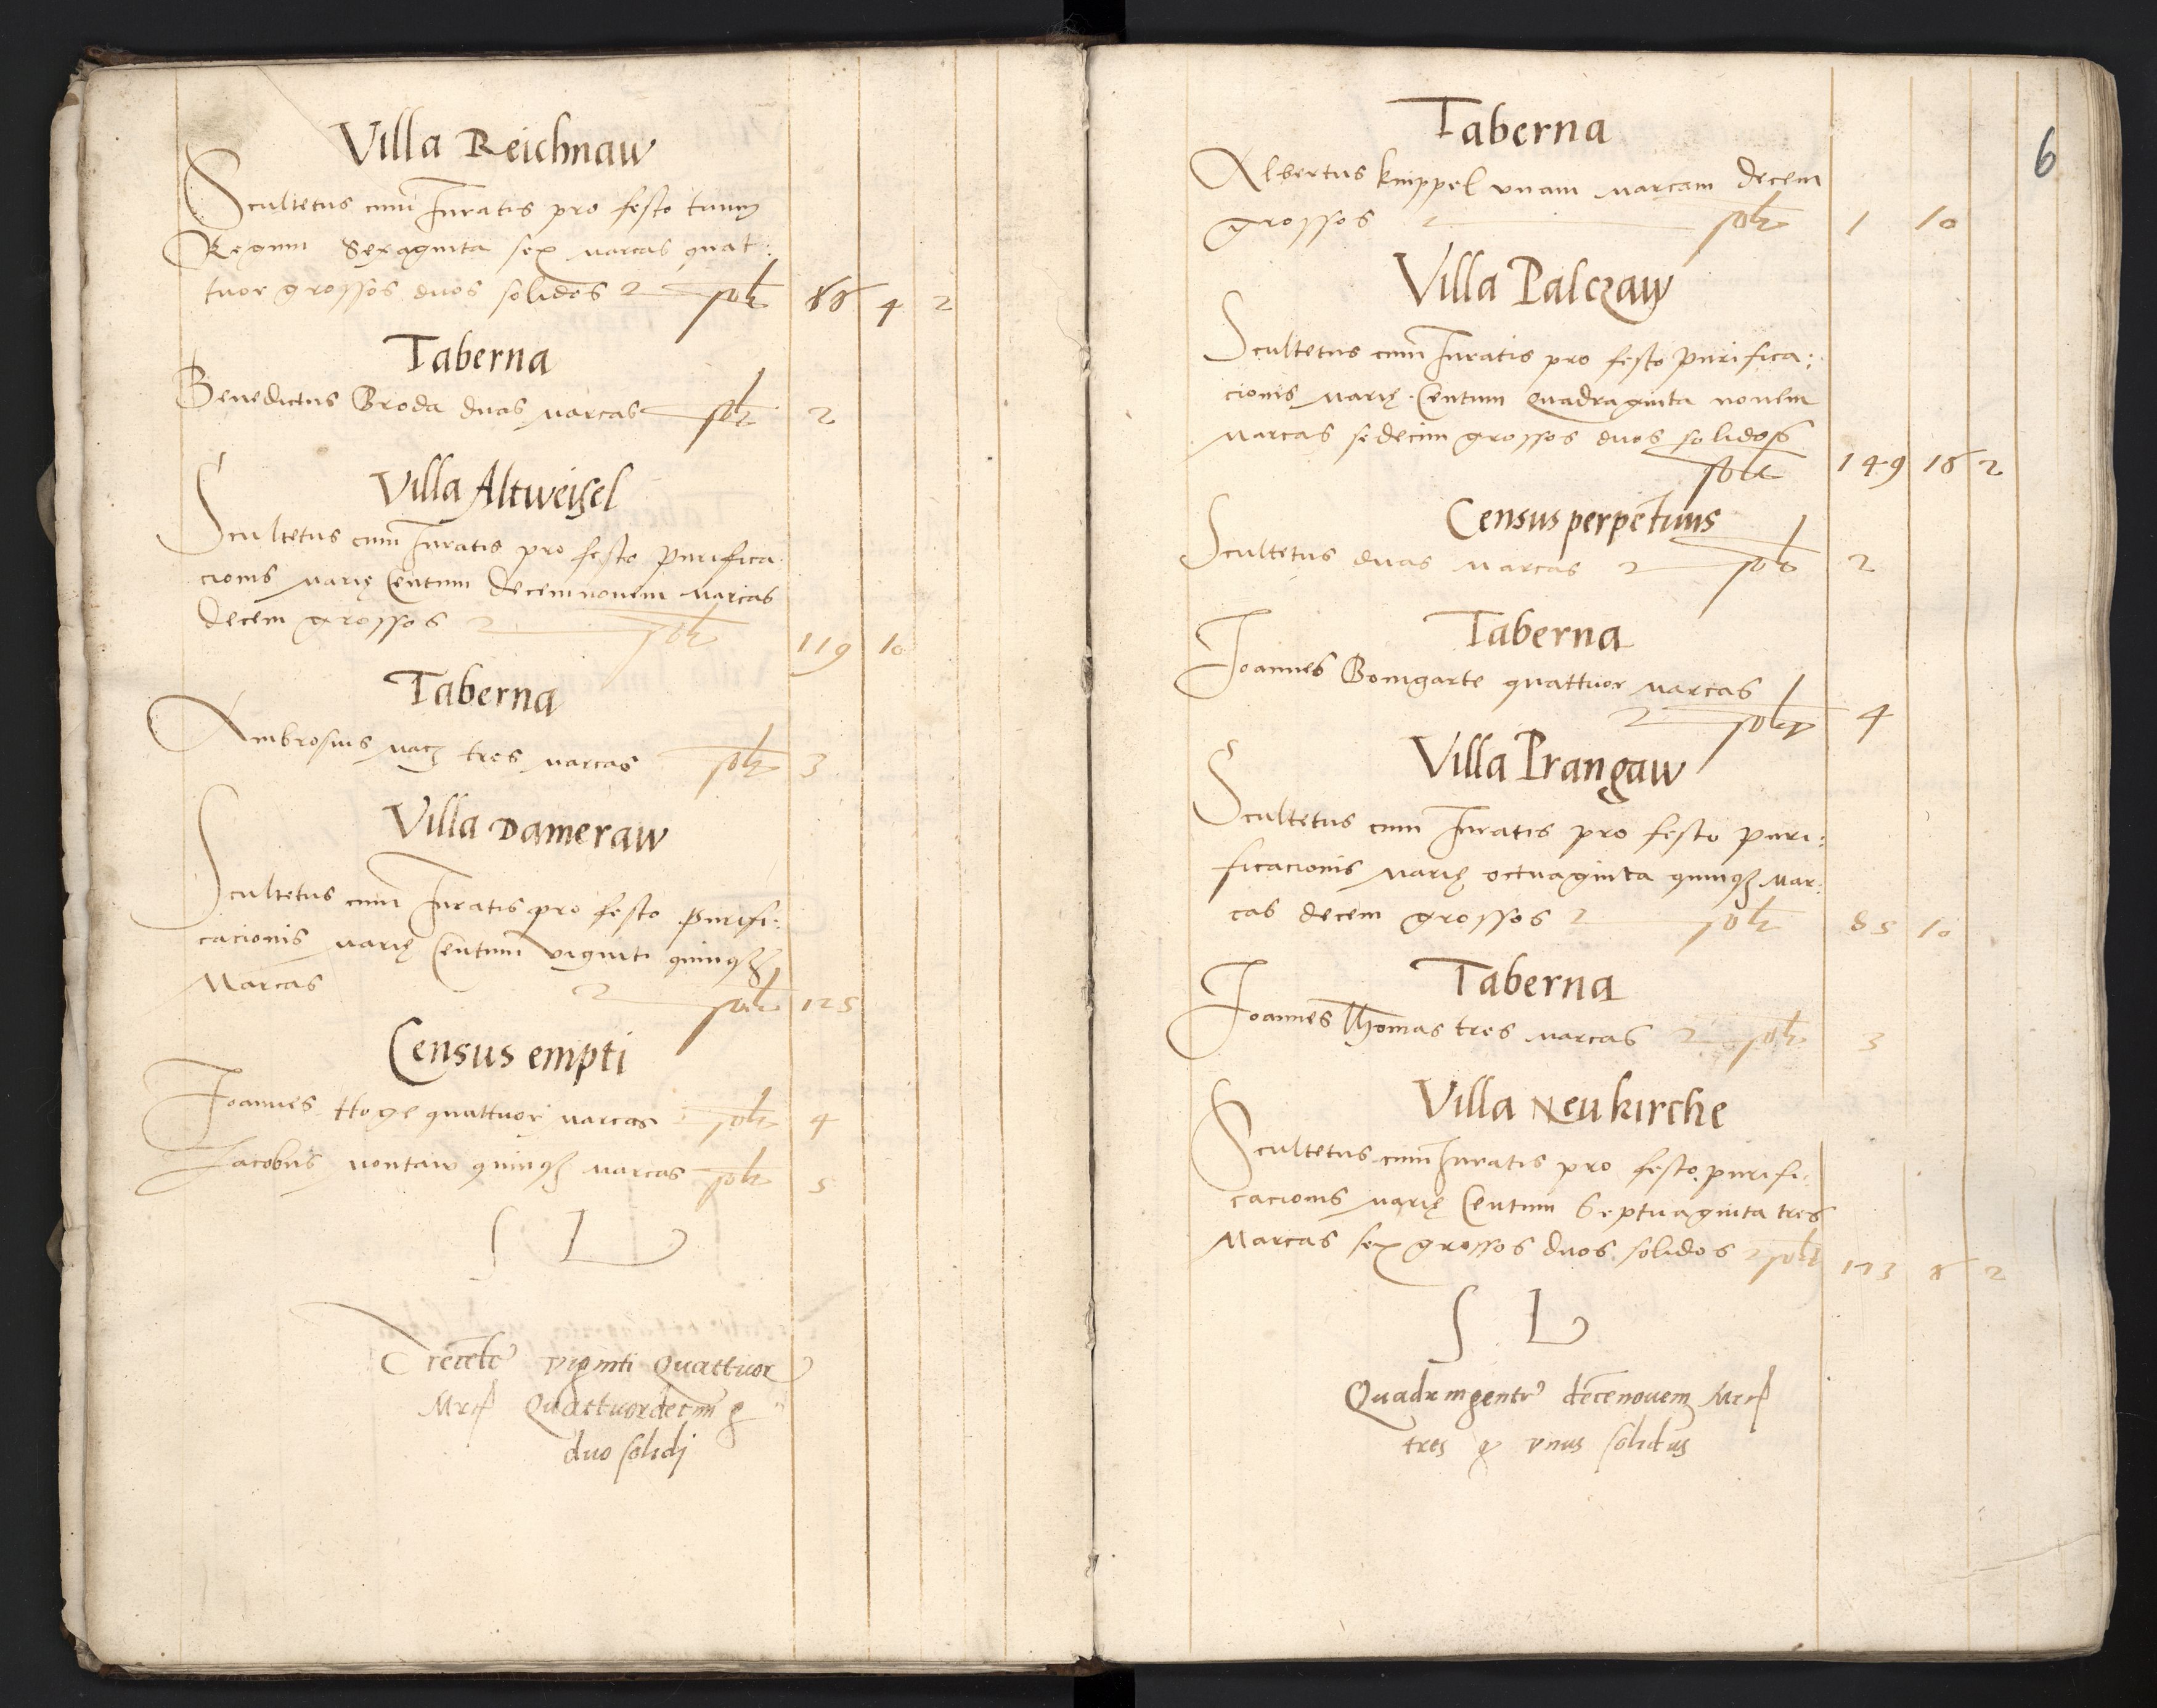 Villa Reichnaw
Scultetus cum Iuratis pro festo trium
Regum Sexaginta sex marcas quat:
tuor grossos duos solidos solt 66 4 2
Taberna
Benedictus Groda duas marcas solt 2
Villa Altweisel
Scultetus cum Iuratis pro festo purifica
cionis Marię Centum decemnouem marcas
decem grossos solt 119 10
Taberna
Ambrosius tres marcas solt 3
Villa Dameraw
Scultetus cum Iuratis pro festo purifi:
cacionis Marię Centum viginti quinqꝫ
Marcas solt 125
Census empti
Joannes Hoge quattuor marcas solt 4
Jacobus Montaw quinqꝫ marcas solt 5
S L
Trecete viginti Quattuor
Mrc Quattuordecim g
duo solidj
6
Taberna
Albertus Knippel vnam marcam decem
grossos solt 1 10
Villa Palczaw
Scultetus cum Iuratis pro festo purifica:
cionis Marię Centum quadraginta nouem
marcas sedecim grossos duos solidos
solt 149 16 2
Census perpetuus
Scultetus duas marcas solt 2
Taberna
Joannes Bomgarte quattuor marcas
solt 4
Villa Prangaw
Scultetus cum Iuratis pro festo puri:
ficacionis Marię octuaginta quinqꝫ mar:
cas decem grossos solt 85 10
Taberna
Joannes Thomas tres marcas solt 3
Villa Neukirche
Scultetus cum Iuratis pro festo purifi:
cacionis Marię Centum septuaginta tres
Marcas sex grossos duos solidos solt 173 6 2
S L
Quadringente decenouem Mrc
tres g vnus solidus